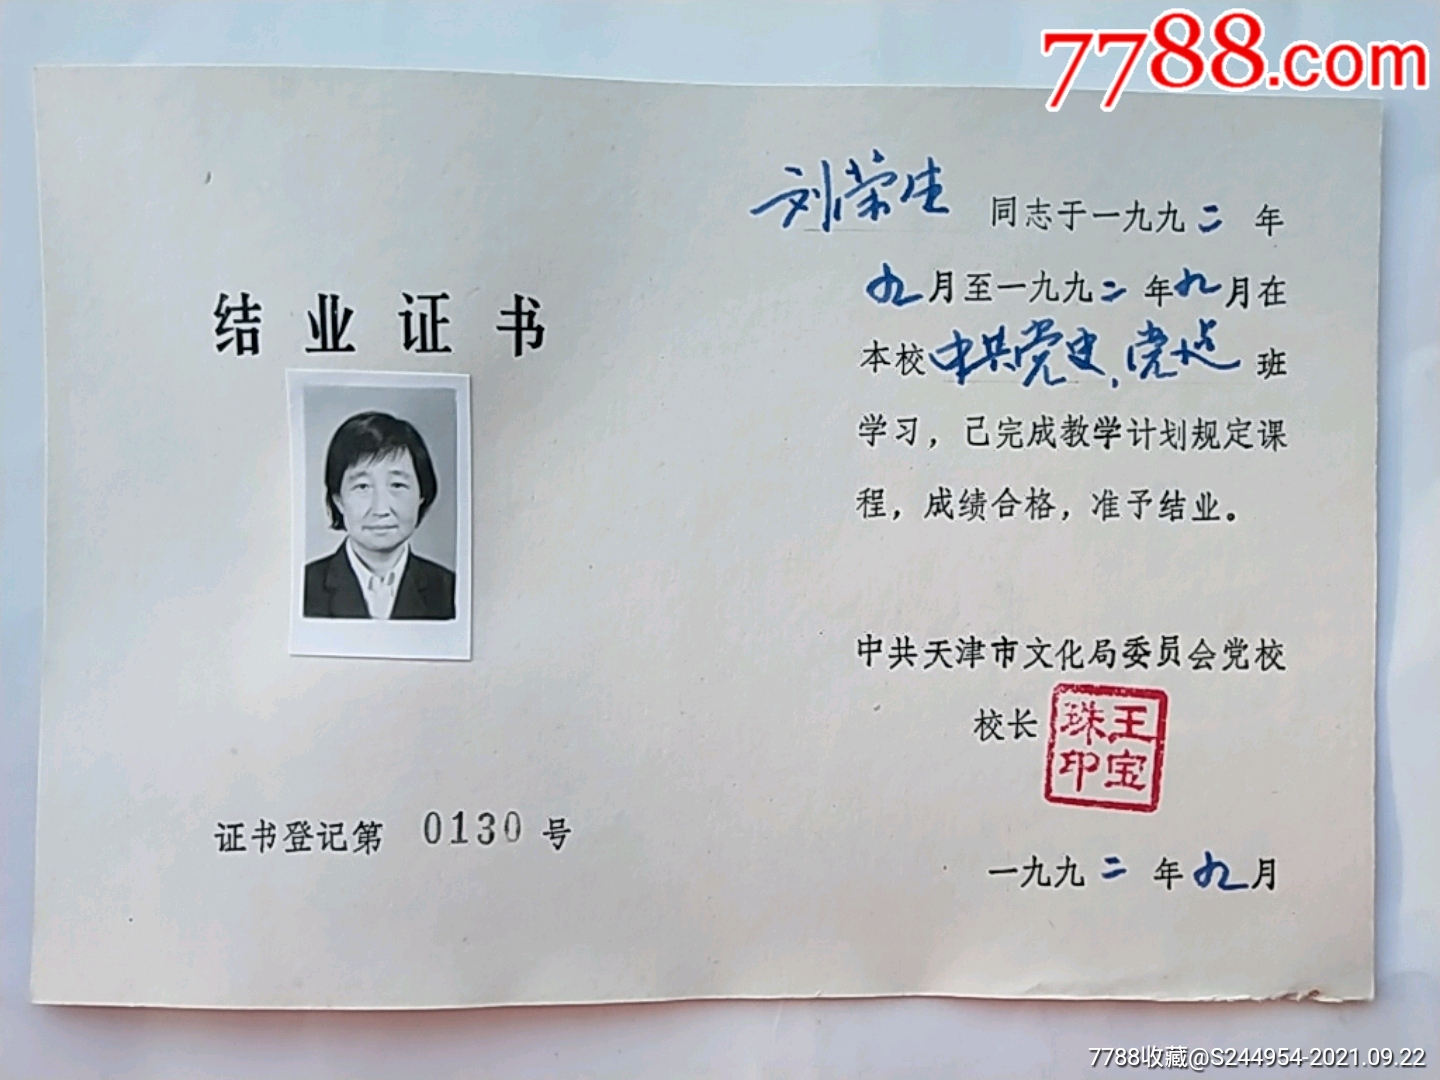 7788.com
结业证书
证书登记第 0130 号
刘荣生 同志于一九九二年
九月至一九九二年九月在
本校中共党史、党建班
学习，已完成教学计划规定课
程，成绩合格，准予结业。
中共天津市文化局委员会党校
校长
王宝珠印
一九九二年九月
7788收藏@S244954-2021.09.22